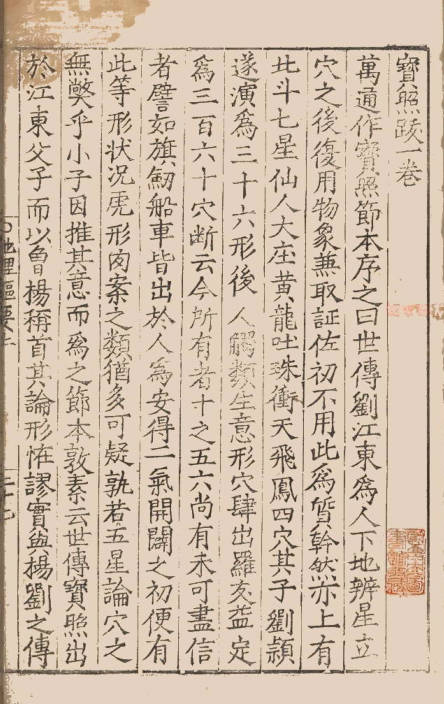 寶照跋一卷
萬通作寶照節本序之曰世傳劉江東爲人下地辨星立
穴之後復用物象兼取証佐初不用此爲貨幹然亦上有
北斗七星仙人大座黃龍吐珠衝天飛鳳四穴其子劉穎
遂演爲三十六形後人觸類生意形穴肆出羅友益定
爲三百六十穴断云今所有者十之五六尚有未可盡信
者譬如旗劒船車皆出於人爲安得二氣開闢之初便有
此等形状况虎形肉案之類猶多可疑孰若五星論穴之
無獘乎小子因推其意而爲之節本敦素云世傳寶照出
於江東父子而以曾楊稱首其論形恠謬實與楊劉之傳
地理樞要